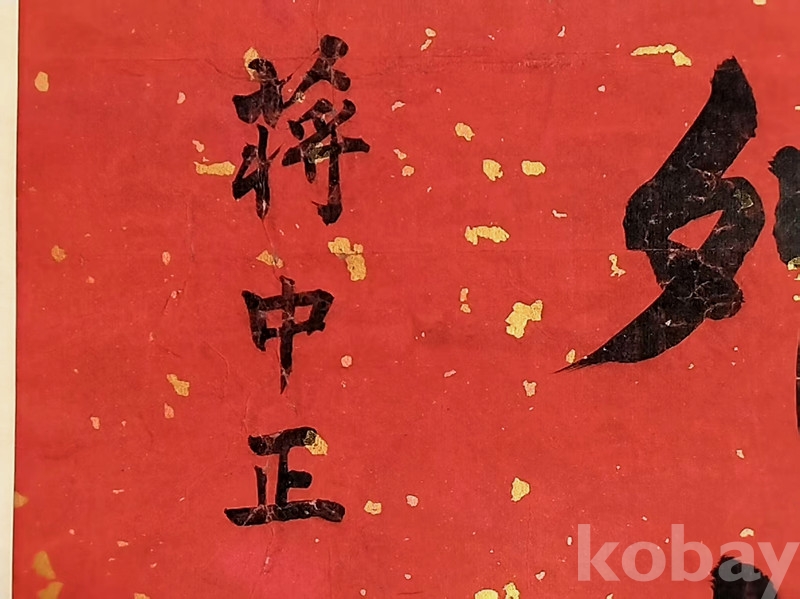 蔣中正
kobay